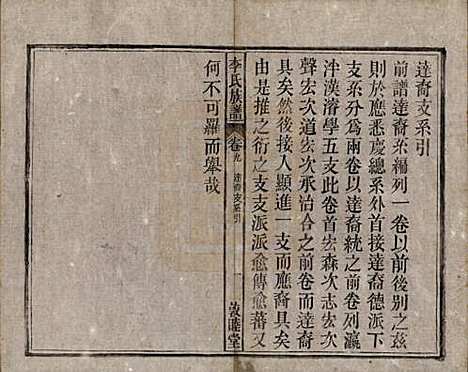 達裔支系引
前譜達裔系編列一卷以前後別之茲
則於應悉慶總系外首接達裔德派下
支系分爲兩卷以達裔統之前卷列瀛
泮漢濬學五支此卷首宏森次志宏
聲宏次道宏次承治合之前卷而達裔
具矣然後接入顯進一支而應裔具矣
由是推之衍之支支派派愈傳愈蕃又
李氏族譜
卷九
達裔支系引
一
敦睦堂
何不可羅而舉哉